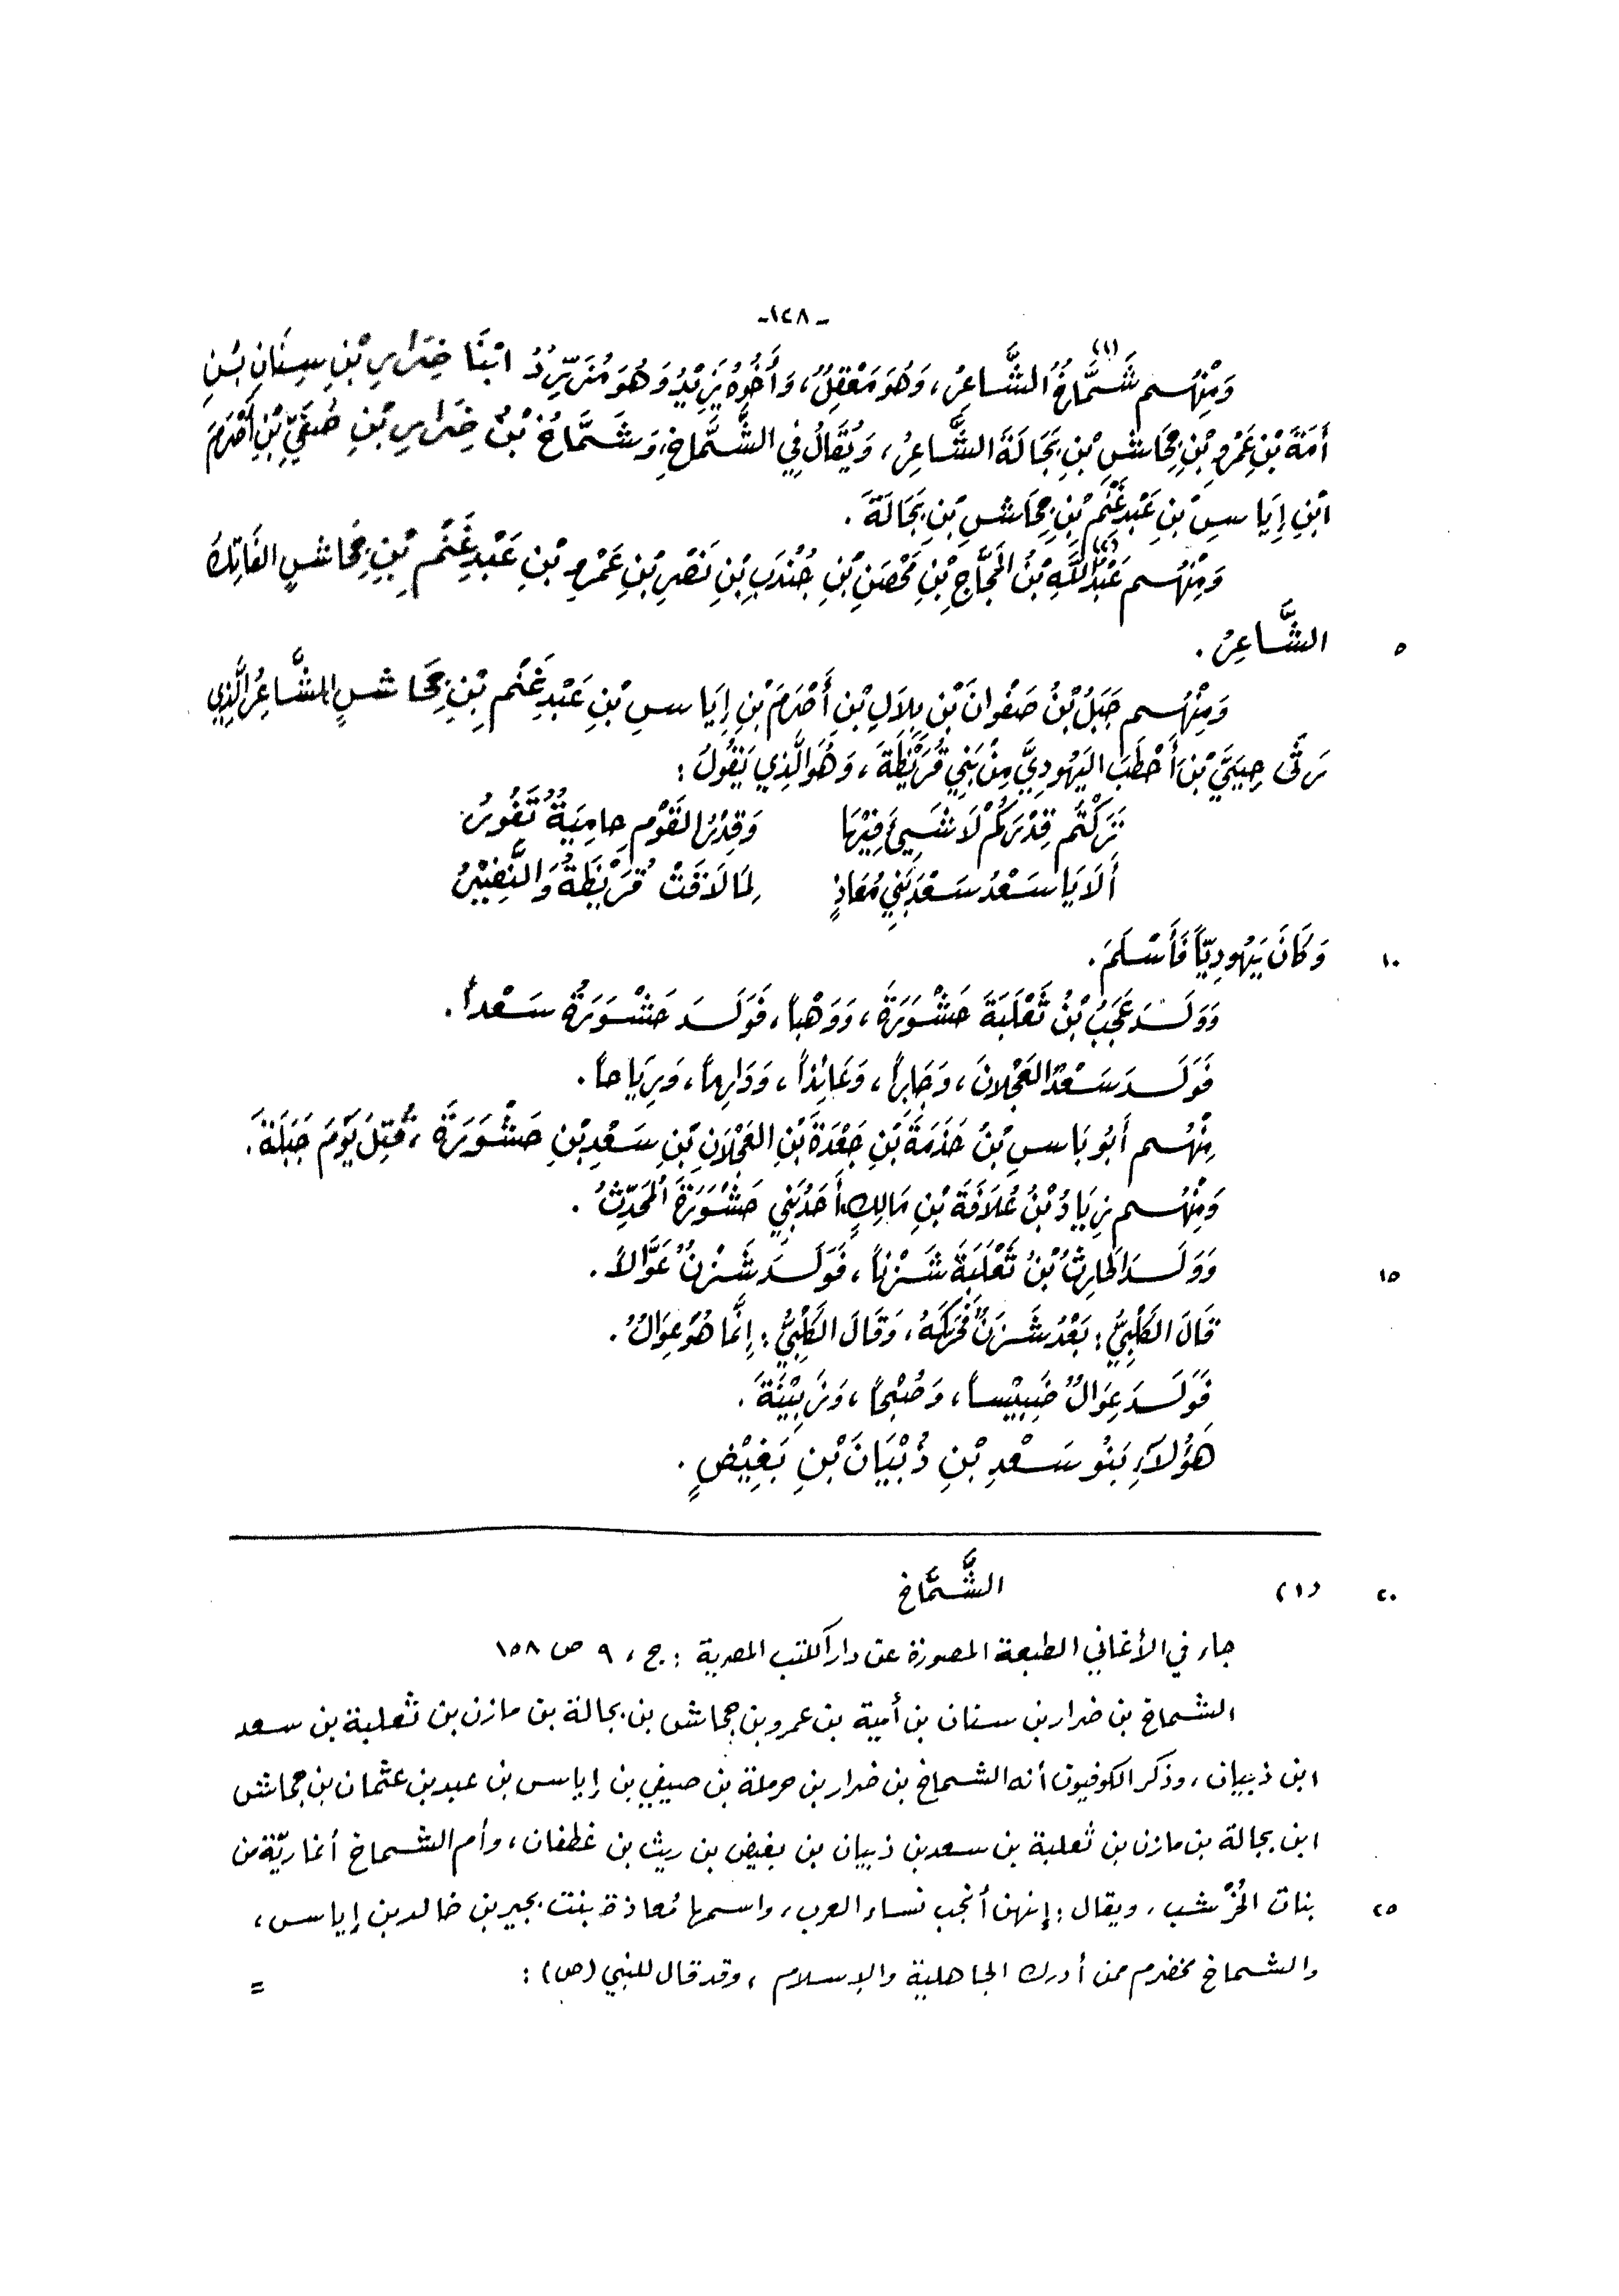 -١٤٨-
وَمِنْهُم شَمَّاخُ (١) الشَّاعِرُ، وَهُوَ مَعْقِلٌ، وَأَخُوهُ يَزِيْدُ وَهُوَ مُزَرِّدُ ابْنَا ضِرَارِ بْنِ سِنَانِ بْنِ
أَمَةَ بْنِ عَمْرِو بْنِ جِحَاشِ بْنِ بَجَالَةَ الشَّاعِرُ، وَيُقَالُ فِي الشَّمَّاخِ، وَشَمَّاخُ بْنُ ضِرَارِ بْنِ صَيْفِيِّ بْنِ أَصْرَمَ
ابْنِ إِيَاسِ بْنِ عَبْدِ غَنْمِ بْنِ جِحَاشِ بْنِ بَجَالَةَ.
وَمِنْهُم عَبْدُ اللَّهِ (٢) بْنُ الحَجَّاجِ بْنِ مَحْصَنِ بْنِ جُنْدَبِ بْنِ نَصْرِ بْنِ عَمْرِو بْنِ عَبْدِ غَنْمِ بْنِ جِحَاشٍ الفَاتِكُ
٥ الشَّاعِرُ.
وَمِنْهُم جَبَلُ بْنُ صَفْوَانَ بْنِ بِلَالِ بْنِ أَصْرَمَ بْنِ إِيَاسِ بْنِ عَبْدِ غَنْمِ بْنِ جِحَاشٍ الشَّاعِرُ الَّذِي
رَثَى حِيَيَّ بْنَ أَخْطَبَ اليَهُودِيَّ مِنْ بَنِي قُرَيْظَةَ، وَهُوَ الَّذِي يَقُولُ:
تَرَكْتُم قِدْرَكُمْ لَا شَيءَ فِيْهَا وَقِدْرُ القَوْمِ حامِيَةٌ تَفُورُ
أَلَا يَا سَعْدُ سَعْدَ بَنِي مُعَاذٍ لِمَا لَاقَتْ قُرَيْظَةُ وَالنَّضِيْرُ
١٠ وَكَانَ يَهُودِيّاً فَأَسْلَمَ.
وَوَلَدَ عَجَبُ بْنُ ثَعْلَبَةَ حَشْوَرَةَ، وَوَهْباً، فَوَلَدَ حَشْوَرَةُ سَعْداً.
فَوَلَدَ سَعْدٌ العَجْلَانَ، وَجَابِراً، وَعَائِذاً، وَدَارِماً، وَرِيَاحاً.
مِنْهُم أَبُو يَاسِ بْنُ حَذَمَةَ بْنِ جَعْدَةَ بْنِ العَجْلَانِ بْنِ سَعْدِ بْنِ حَشْوَرَةَ، قُتِلَ يَوْمَ جَبَلَةَ.
وَمِنْهُم زِيَادُ بْنُ عُلَاقَةَ بْنِ مَالِكٍ أَحَدُ بَنِي حَشْوَرَةَ المُحَدِّثُ.
١٥ وَوَلَدَ الحَارِثُ بْنُ ثَعْلَبَةَ شَزْناً، فَوَلَدَ شَزْنٌ عَوَّالاً.
قَالَ الكَلْبِيُّ: بَعْدُ شَزَنٌ فَحَرَّكَهُ، وَقَالَ الكَلْبِيُّ: إِنَّمَا هُوَ عِوَالٌ.
فَوَلَدَ عِوَالٌ خَبِيْساً، وَصُبْحاً، وَزَبِيْنَةَ.
هَؤُلَاءِ بَنُو سَعْدِ بْنِ ذُبْيَانَ بْنِ بَغِيْضٍ.
٢٠ (١) الشَّمَّاخ
جاء في الأغاني الطبعة المصورة عن دار الكتب المصرية: ج، ٩ ص ١٥٨
الشماخ بن ضرار بن سنان بن أمية بن عمرو بن جحاش بن بجالة بن مازن بن ثعلبة بن سعد
ابن ذبيان، وذكر الكوفيون أنه الشماخ بن ضرار بن حرملة بن صيفي بن إياس بن عبد بن عثمان بن جحاش
ابن بجالة بن مازن بن ثعلبة بن سعد بن ذبيان بن بغيض بن ريث بن غطفان، وأم الشماخ أنماريّة من
٢٥ بنات الخُرْشب، ويقال: إنهن أنجب نساء العرب، واسمها مُعاذة بنت بجير بن خالد بن إياس،
والشماخ مخضرم ممن أدرك الجاهلية والإسلام، وقد قال للنبي (ص): =